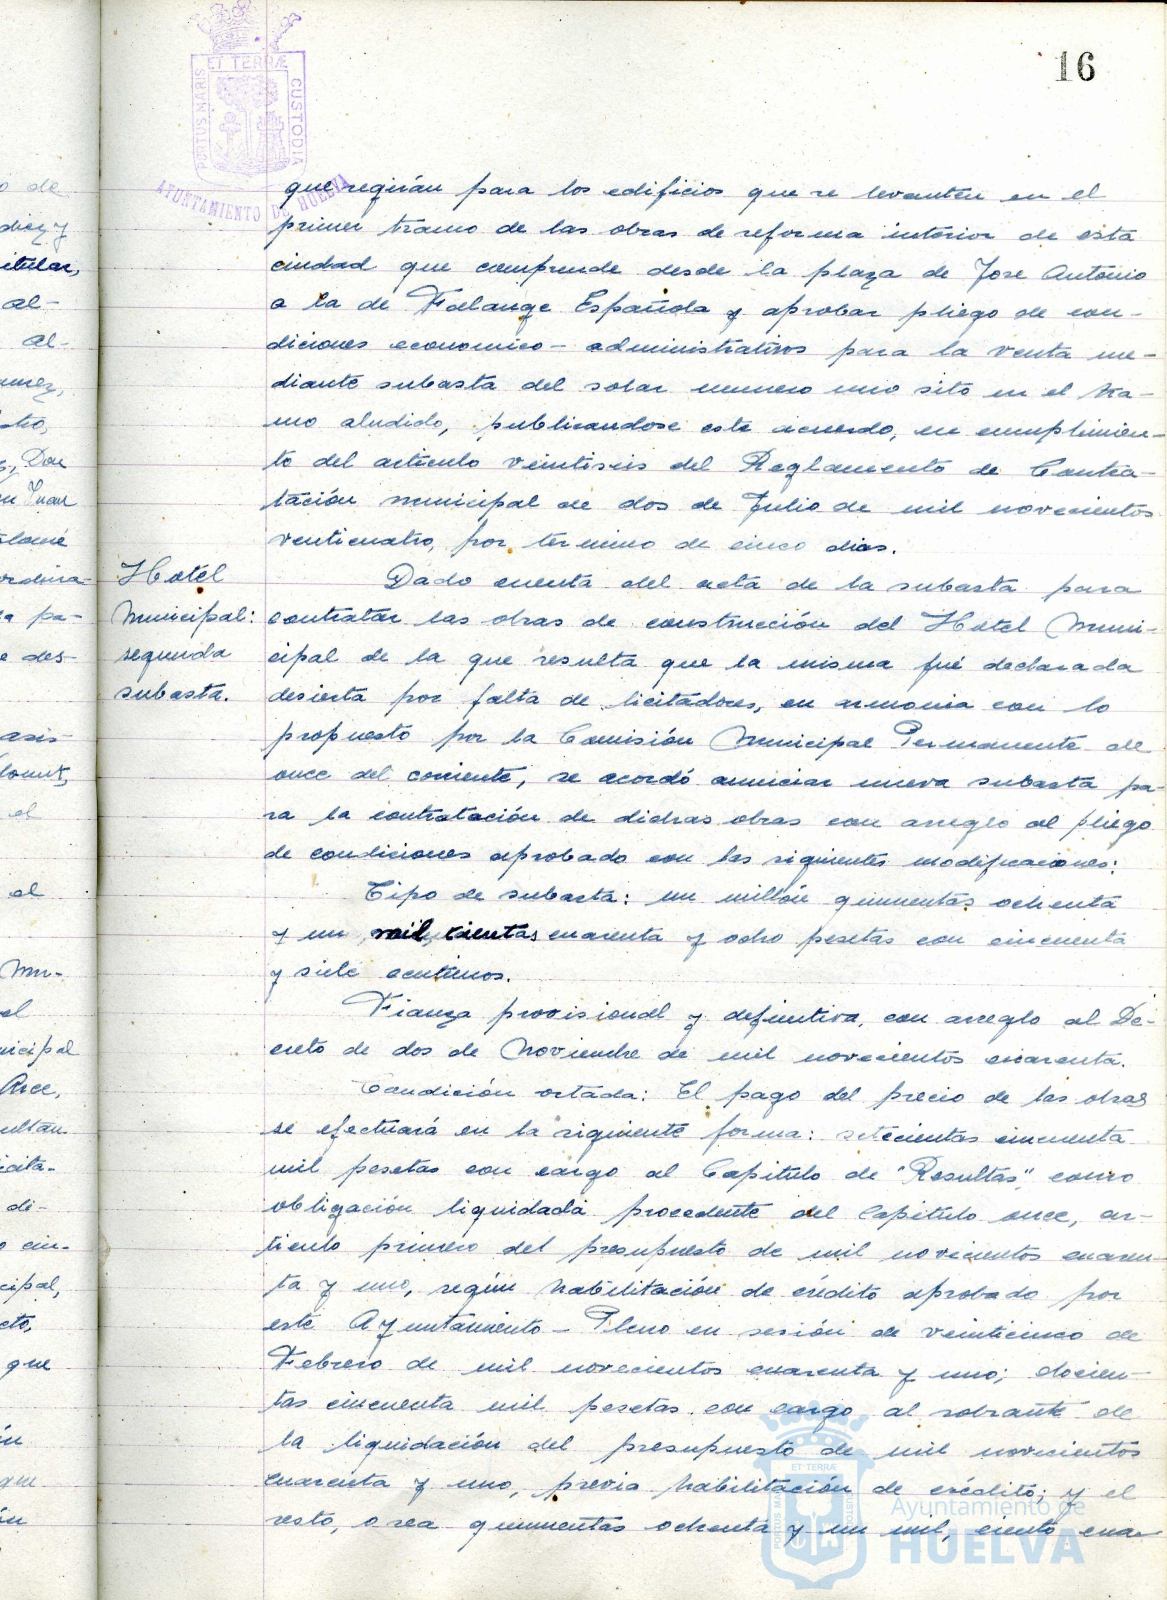 16
ET TERRÆ
PORTUS MARIS
CUSTODIA
AYUNTAMIENTO DE HUELVA
que regirán para los edificios que se levanten en el
primer tramo de las obras de reforma interior de esta
ciudad que comprende desde la plaza de Jose Antonio
a la de Falange Española y aprobar pliego de con-
diciones economico-administrativos para la venta me-
diante subasta del solar numero uno sito en el tra-
mo aludido, publicandose este acuerdo, en cumplimien-
to del articulo veintiseis del Reglamento de Contra-
tación municipal de dos de Julio de mil novecientos
venticuatro, por termino de cinco dias.
Hotel
Municipal:
segunda
subasta.
Dado cuenta del acta de la subasta para
contratar las obras de construcción del Hotel Muni-
cipal de la que resulta que la misma fué declarada
desierta por falta de licitadores, en armonia con lo
propuesto por la Comisión Municipal Permanente de
once del corriente, se acordó anunciar nueva subasta pa-
ra la contratación de dichas obras con arreglo al pliego
de condiciones aprobado con las siguientes modificaciones:
Tipo de subasta: un millón quinientas ochenta
y un mil, cientas cuarenta y ocho pesetas con cincuenta
y siete centimos.
Fianza provisional y definitiva, con arreglo al De-
creto de dos de Noviembre de mil novecientos cuarenta.
Condición octada: El pago del precio de las obras
se efectuará en la siguiente forma: setecientas cincuenta
mil pesetas con cargo al Capitulo de "Resultas", como
obligación liquidada procedente del Capitulo once, ar-
ticulo primero del presupuesto de mil novecientos cuaren-
ta y uno, según habilitación de crédito aprobado por
este Ayuntamiento-Pleno en sesión de veinticinco de
Febrero de mil novecientos cuarenta y uno; docien-
tas cincuenta mil pesetas con cargo al sobrante de
la liquidación del presupuesto de mil novecientos
cuarenta y uno, previa habilitación de crédito; y el
resto, o sea quinientas ochenta y un mil, ciento cua-
Ayuntamiento de
HUELVA